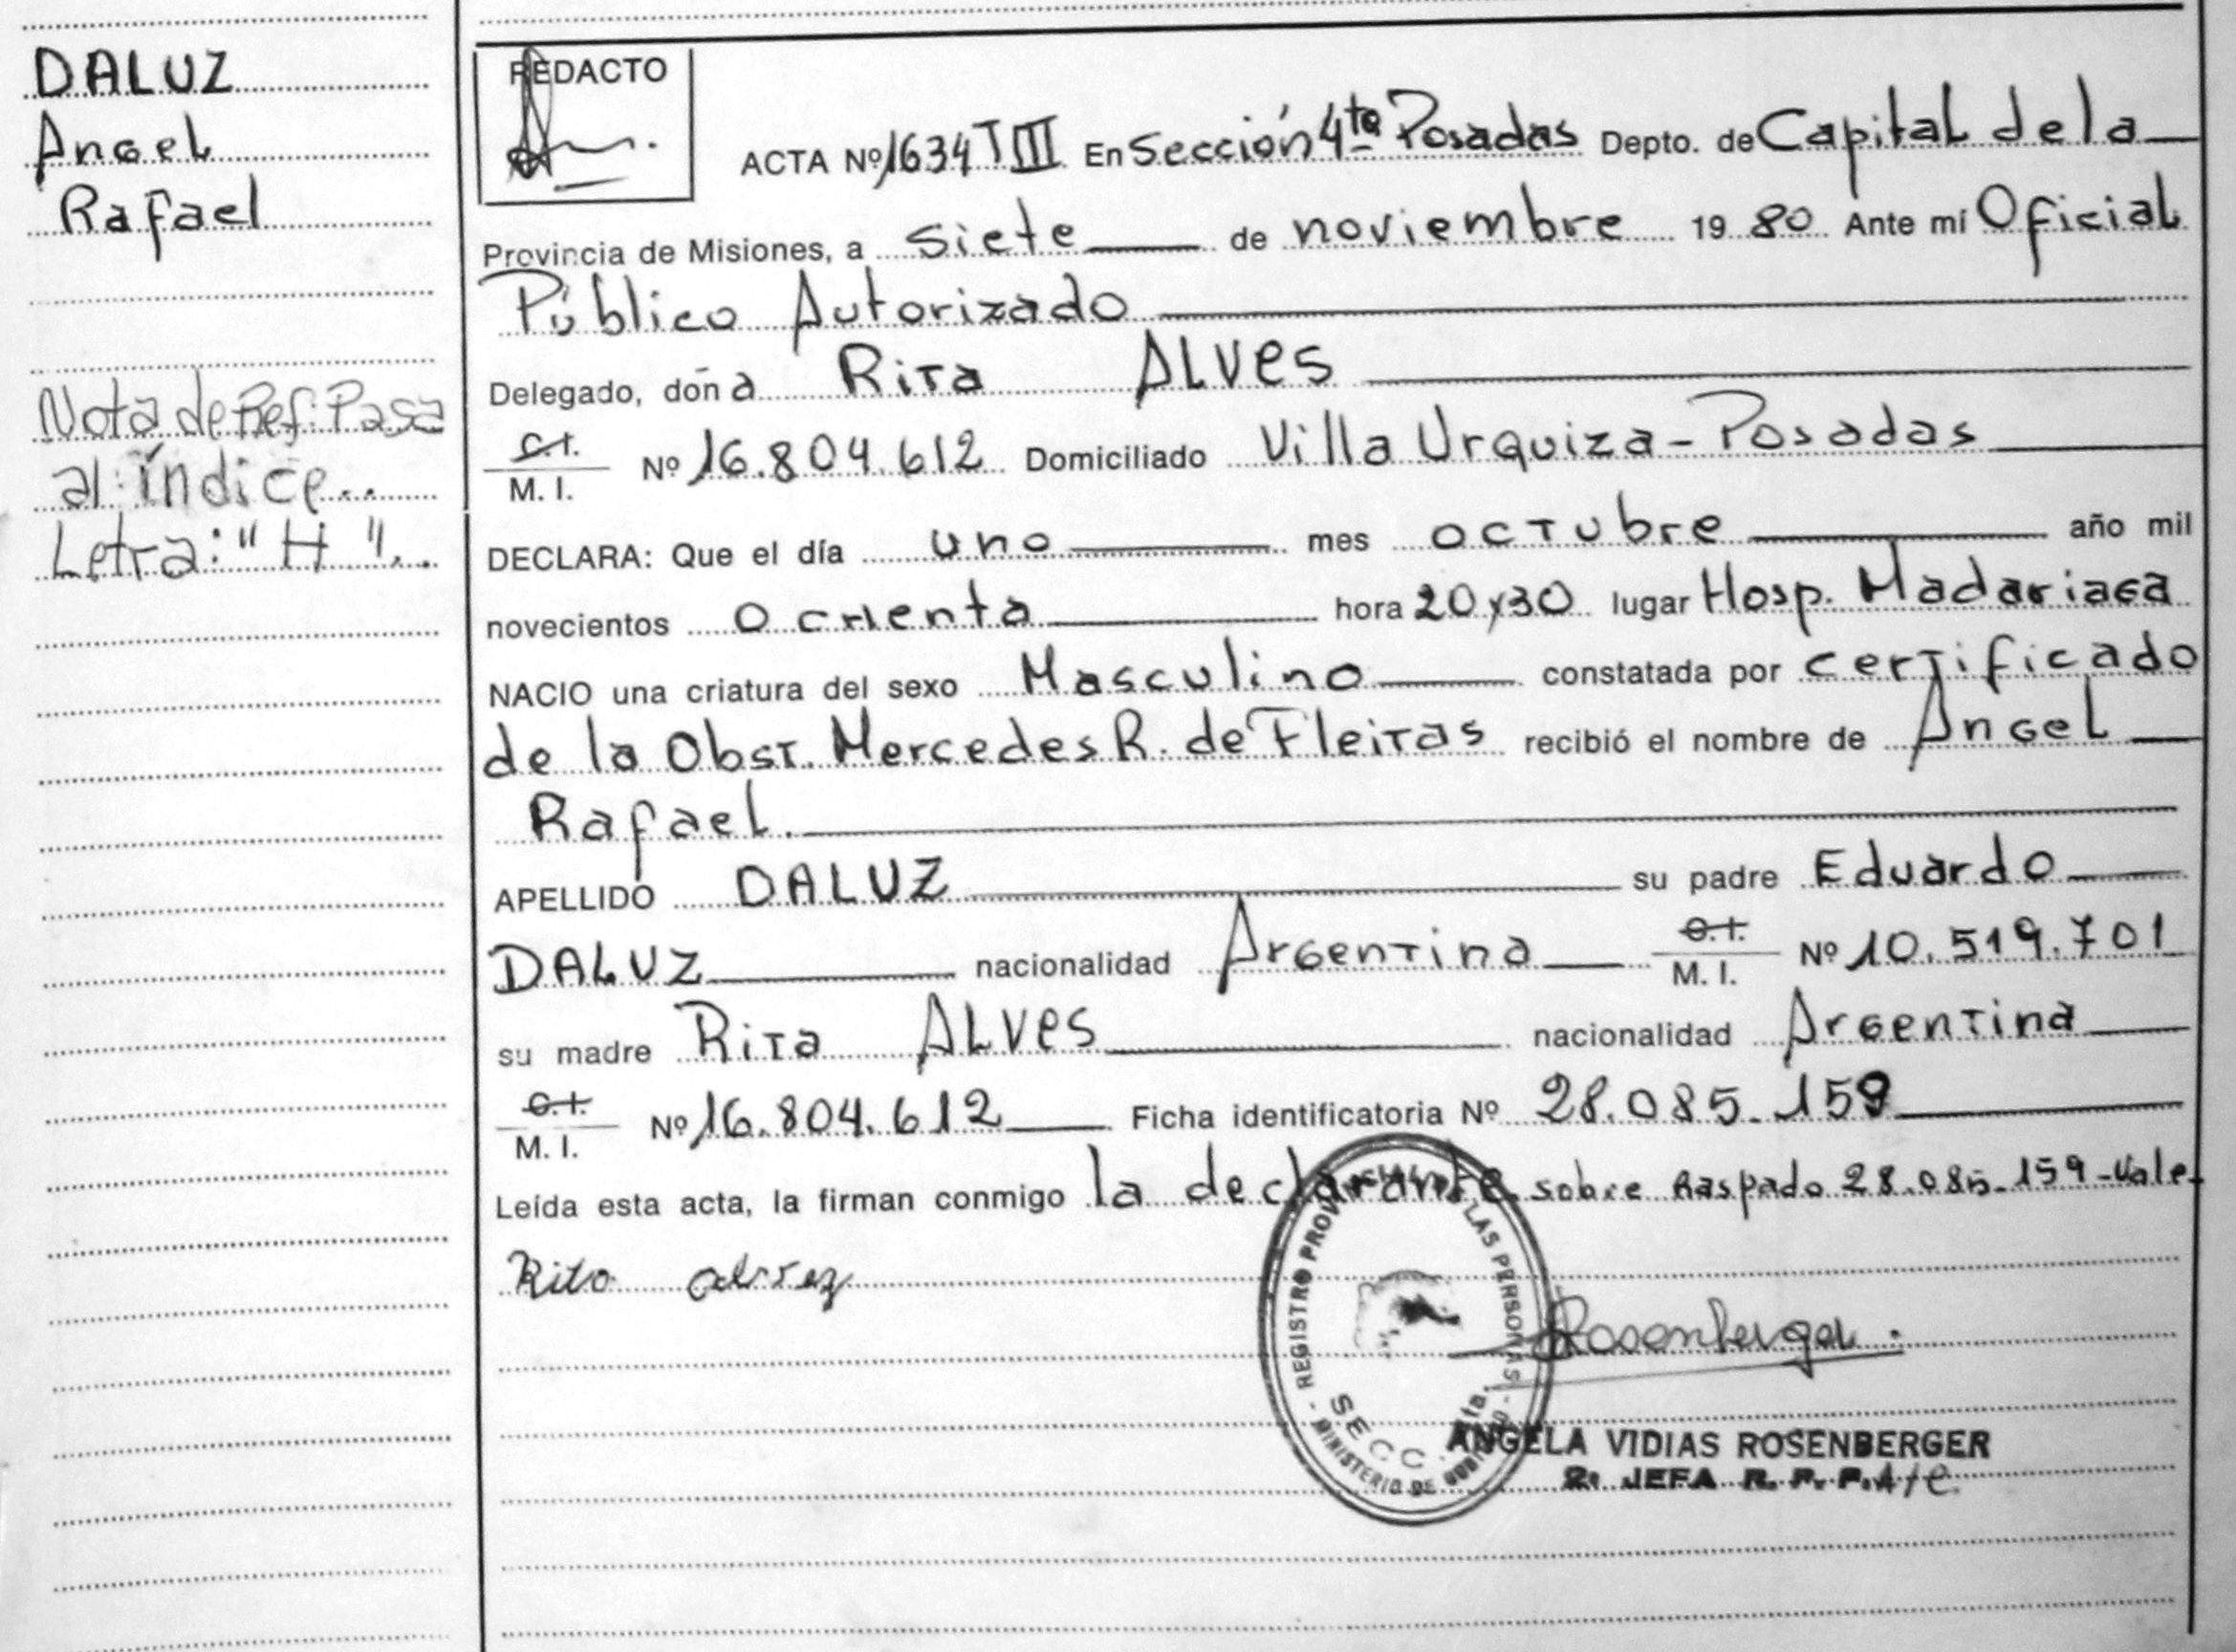 DALUZ
Angel
Rafael
Nota de Ref: Pasa
al: índice..
Letra: "H"..
REDACTO
ACTA Nº 1634 T III En Sección 4ta Posadas Depto. de Capital de la
Provincia de Misiones, a siete de noviembre 19 80 Ante mí Oficial
Público Autorizado
Delegado, doña Rita ALVES
C.I.
M. I. Nº 16.804.612 Domiciliado Villa Urquiza - Posadas
DECLARA: Que el día uno mes octubre año mil
novecientos ochenta hora 20y30 lugar Hosp. Madariaga
NACIO una criatura del sexo Masculino constatada por certificado
de la Obst. Mercedes R. de Fleitas recibió el nombre de Angel
Rafael.
APELLIDO DALUZ su padre Eduardo
DALUZ nacionalidad Argentina C.I. M. I. Nº 10.519.701
su madre Rita ALVES nacionalidad Argentina
C.I.
M. I. Nº 16.804.612 Ficha identificatoria Nº 28.085.159
Leída esta acta, la firman conmigo la declarante. sobre Raspado 28.085.159 - Vale-
Rita
REGISTRO PROVINCIAL DE LAS PERSONAS
MINISTERIO DE GOBIERNO
SECC. 4ta.
Rosenberger
ANGELA VIDIAS ROSENBERGER
2ª JEFA R. P. P. A/C